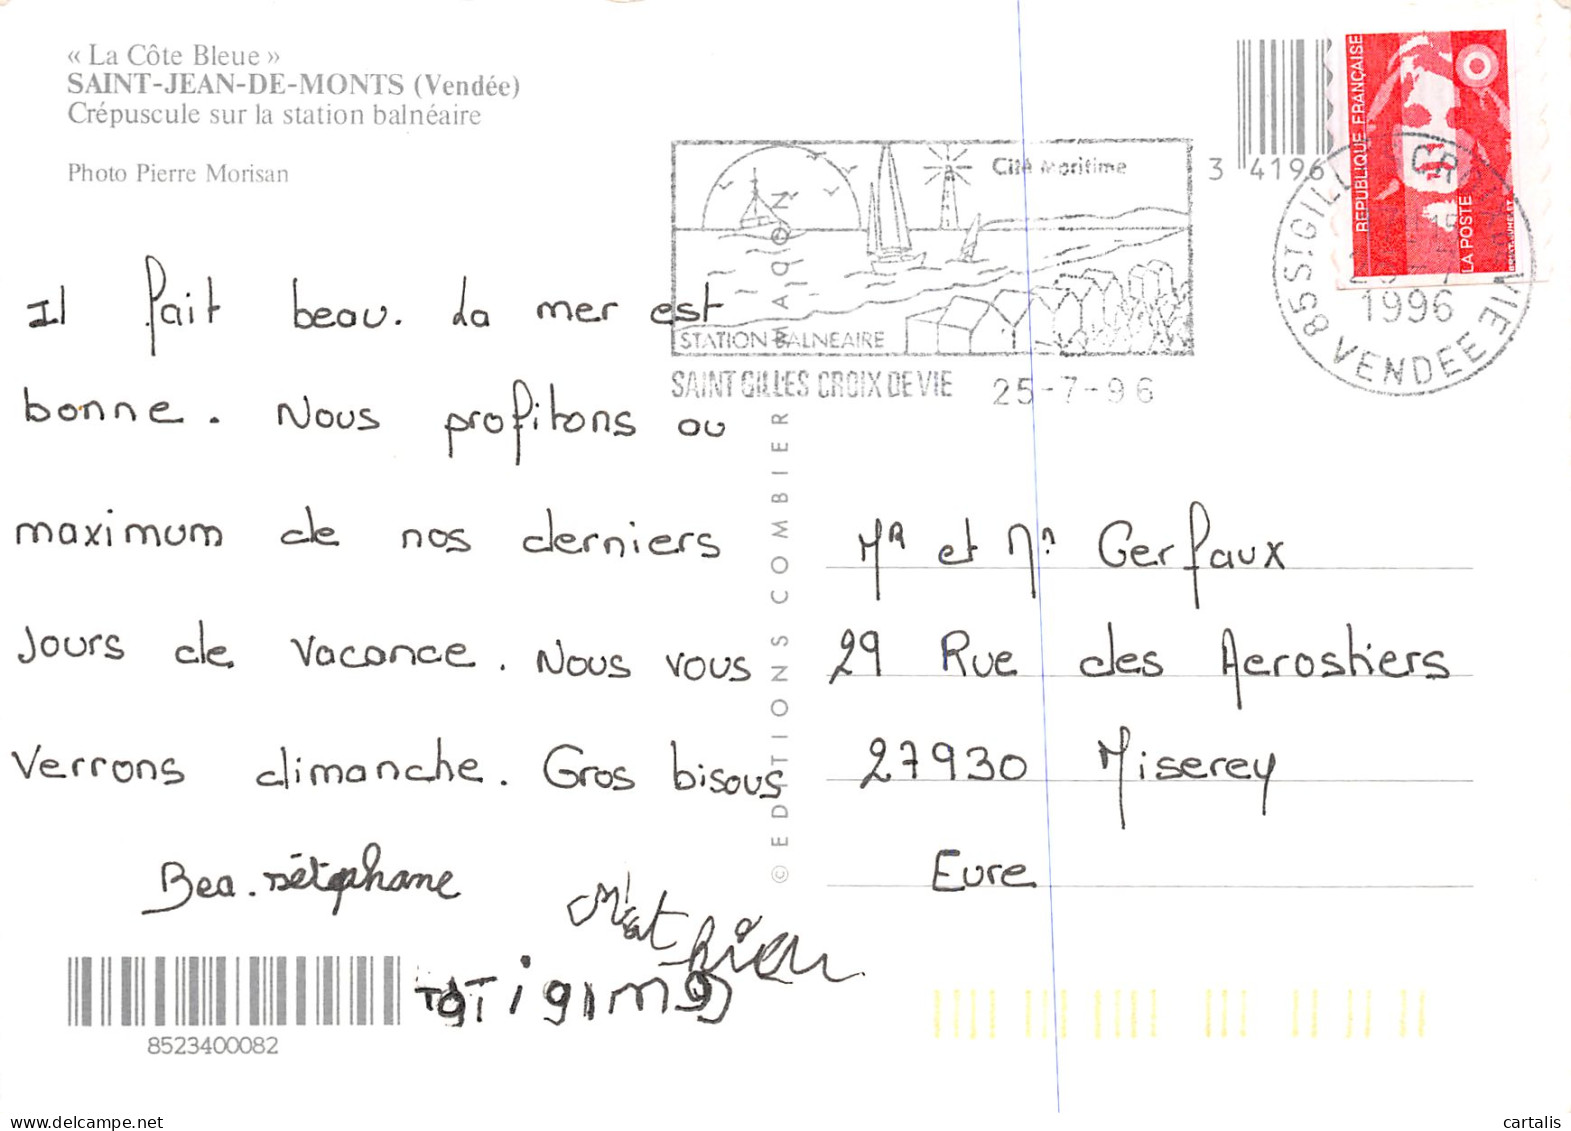 « La Côte Bleue »
SAINT-JEAN-DE-MONTS (Vendée)
Crépuscule sur la station balnéaire
Photo Pierre Morisan
Cité Maritime
STATION BALNEAIRE
SAINT GILLES CROIX DE VIE 25-7-96
3 4196
REPUBLIQUE FRANÇAISE
LA POSTE
85 ST GILLES CROIX VIE
1996
VENDEE
Il fait beau. La mer est
bonne. Nous profitons au
maximum de nos derniers
jours de vacance. Nous vous
verrons dimanche. Gros bisous
Bea. Stéphane
Mathieu
© EDITIONS COMBIER MACON
Mr et Mn Gerfaux
29 Rue des Aerostiers
27930 Miserey
Eure
8523400082
delcampe.net
cartalis